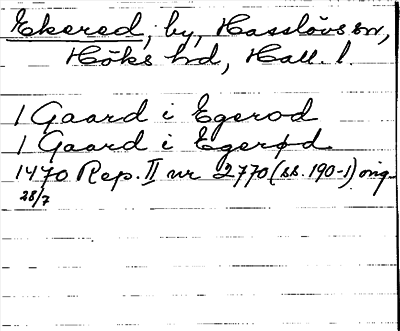 Ekered, by, Hasslövs sn,
Höks hd, Hall. l.
1 Gaard i Egerod
1 Gaard i Egerød
1470 Rep. II nr 2770 (ss. 190-1) orig.
28/7